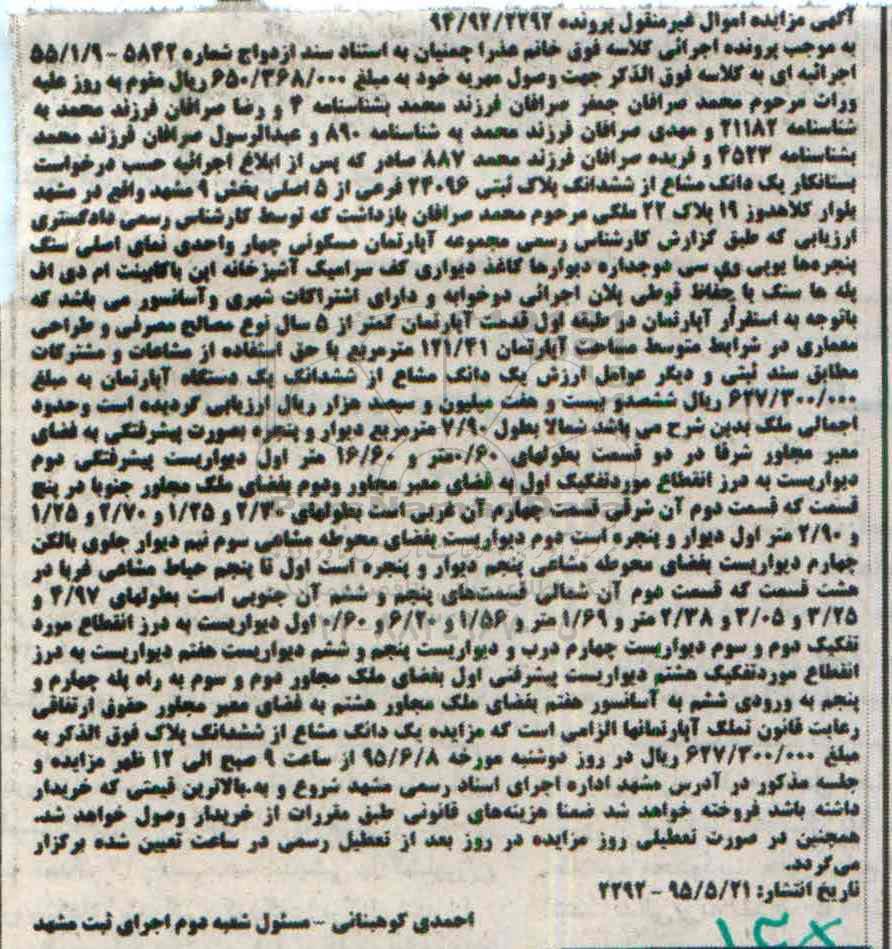 آگهی مزایده اموال غیرمنقول پرونده ۹۴/۹۲/۲۲۹۲
به موجب پرونده اجرائی کلاسه فوق خانم عذرا چمنیان به استناد سند ازدواج شماره ۵۸۴۲ - ۵۵/۱/۹
اجرائیه ای به کلاسه فوق الذکر جهت وصول مهریه خود به مبلغ ۶۵۰/۳۶۸/۰۰۰ ریال مقوم به روز علیه
وراث مرحوم محمد صرافان جعفر صرافان فرزند محمد بشناسنامه ۴ و رضا صرافان فرزند محمد به
شناسنامه ۲۱۱۸۲ و مهدی صرافان فرزند محمد به شناسنامه ۸۹۰ و عبدالرسول صرافان فرزند محمد
بشناسنامه ۴۵۲۳ و فریده صرافان فرزند محمد ۸۸۷ صادر که پس از ابلاغ اجرائیه حسب درخواست
بستانکار یک دانگ مشاع از ششدانگ پلاک ثبتی ۲۴۰۹۶ فرعی از ۵ اصلی بخش ۹ مشهد واقع در مشهد
بلوار کلاهدوز ۱۹ پلاک ۲۲ ملکی مرحوم محمد صرافان بازداشت که توسط کارشناس رسمی دادگستری
ارزیابی که طبق گزارش کارشناس رسمی مجموعه آپارتمان مسکونی چهار واحدی نمای اصلی سنگ
پنجره‌ها یوپی وی سی دوجداره دیوارها کاغذ دیواری کف سرامیک آشپزخانه اپن باکابینت ام دی اف
پله ها سنگ با حفاظ قوطی پلان اجرائی دوخوابه و دارای اشتراکات شهری وآسانسور می باشد که
باتوجه به استقرار آپارتمان در طبقه اول قدمت آپارتمان کمتر از ۵ سال نوع مصالح مصرفی و طراحی
معماری در شرایط متوسط مساحت آپارتمان ۱۲۱/۴۱ مترمربع با حق استفاده از مشاعات و مشترکات
مطابق سند ثبتی و دیگر عوامل ارزش یک دانگ مشاع از ششدانگ یک دستگاه آپارتمان به مبلغ
۶۲۷/۳۰۰/۰۰۰ ریال ششصدو بیست و هفت میلیون و سیصد هزار ریال ارزیابی گردیده است وحدود
اجمالی ملک بدین شرح می باشد شمالا بطول ۷/۹۰ مترمربع دیوار و پنجره بصورت پیشرفتگی به فضای
معبر مجاور شرقا در دو قسمت بطولهای ۰/۶۰متر و ۱۶/۶۰ متر اول دیواریست پیشرفتگی دوم
دیواریست به درز انقطاع موردتفکیک اول به فضای معبر مجاور ودوم بفضای ملک مجاور جنوبا در پنج
قسمت که قسمت دوم آن شرقی قسمت چهارم آن غربی است بطولهای ۲/۳۰ و ۱/۲۵ و ۲/۷۰ و ۱/۲۵
و ۲/۹۰ متر اول دیوار و پنجره است دوم دیواریست بفضای محوطه مشاعی سوم نیم دیوار جلوی بالکن
چهارم دیواریست بفضای محوطه مشاعی پنجم دیوار و پنجره است اول تا پنجم حیاط مشاعی غربا در
هشت قسمت که قسمت دوم آن شمالی قسمت‌های پنجم و ششم آن جنوبی است بطولهای ۴/۹۷ و
۳/۲۵ و ۳/۰۵ و ۲/۳۸ متر و ۱/۶۹ متر و ۱/۵۶ و ۶/۲۰ و ۰/۶۰ اول دیواریست به درز انقطاع مورد
تفکیک دوم و سوم دیواریست چهارم درب و دیواریست پنجم و ششم دیواریست هفتم دیواریست به درز
انقطاع موردتفکیک هشتم دیواریست پیشرفتی اول بفضای ملک مجاور دوم و سوم به راه پله چهارم و
پنجم به ورودی ششم به آسانسور هفتم بفضای ملک مجاور هشتم به فضای معبر مجاور حقوق ارتفاقی
رعایت قانون تملک آپارتمانها الزامی است که مزایده یک دانگ مشاع از ششدانگ پلاک فوق الذکر به
مبلغ ۶۲۷/۳۰۰/۰۰۰ ریال در روز دوشنبه مورخه ۹۵/۶/۸ از ساعت ۹ صبح الی ۱۲ ظهر مزایده و
جلسه مذکور در آدرس مشهد اداره اجرای اسناد رسمی مشهد شروع و به.بالاترین قیمتی که خریدار
داشته باشد فروخته خواهد شد ضمنا هزینه‌های قانونی طبق مقررات از خریدار وصول خواهد شد.
همچنین در صورت تعطیلی روز مزایده در روز بعد از تعطیل رسمی در ساعت تعیین شده برگزار
می‌گردد.
تاریخ انتشار: ۹۵/۵/۲۱ - ۲۲۹۲
احمدی کوهبنانی - مسئول شعبه دوم اجرای ثبت مشهد